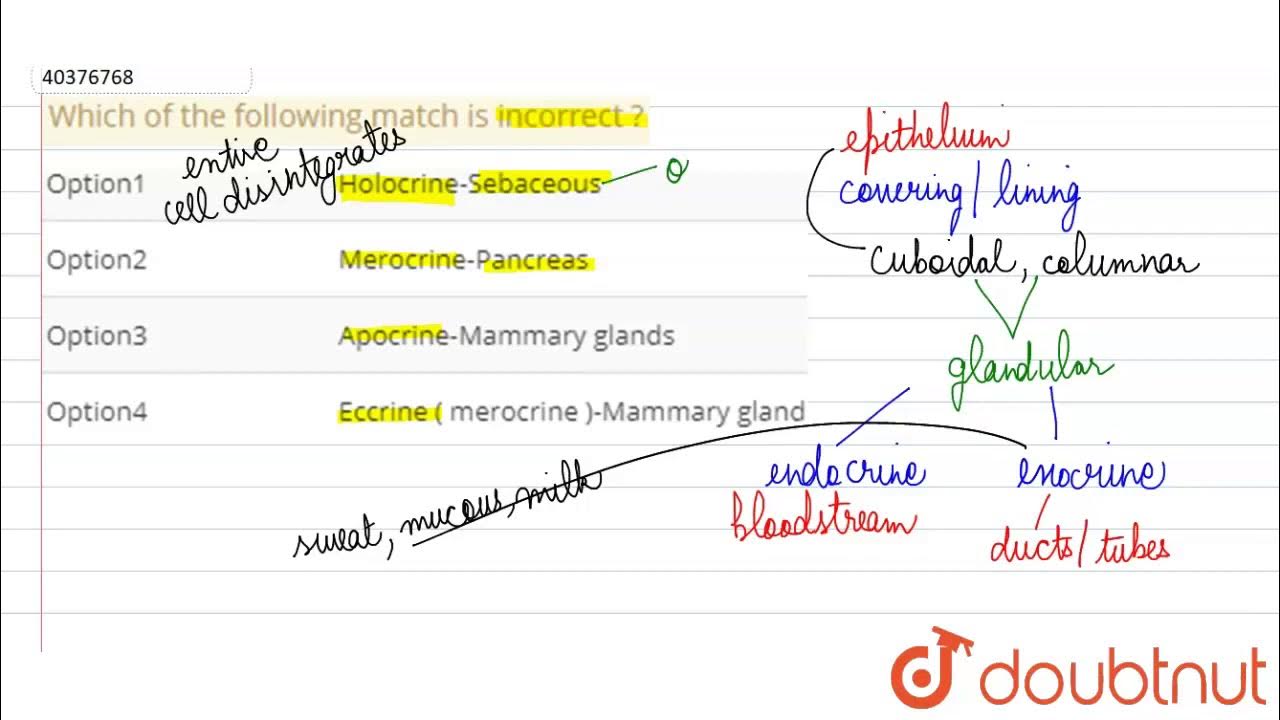 40376768
Which of the following match is incorrect ?
entire
cell disintegrates
Option1 Holocrine-Sebaceous
Option2 Merocrine-Pancreas
Option3 Apocrine-Mammary glands
Option4 Eccrine ( merocrine )-Mammary gland
sweat, mucous, milk
epithelium
covering/ lining
cuboidal, columnar
glandular
endocrine exocrine
bloodstream
ducts/ tubes
doubtnut